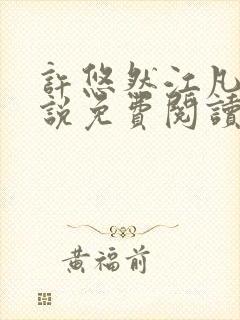 許悠然江凡
說免費閱讀
黃福前